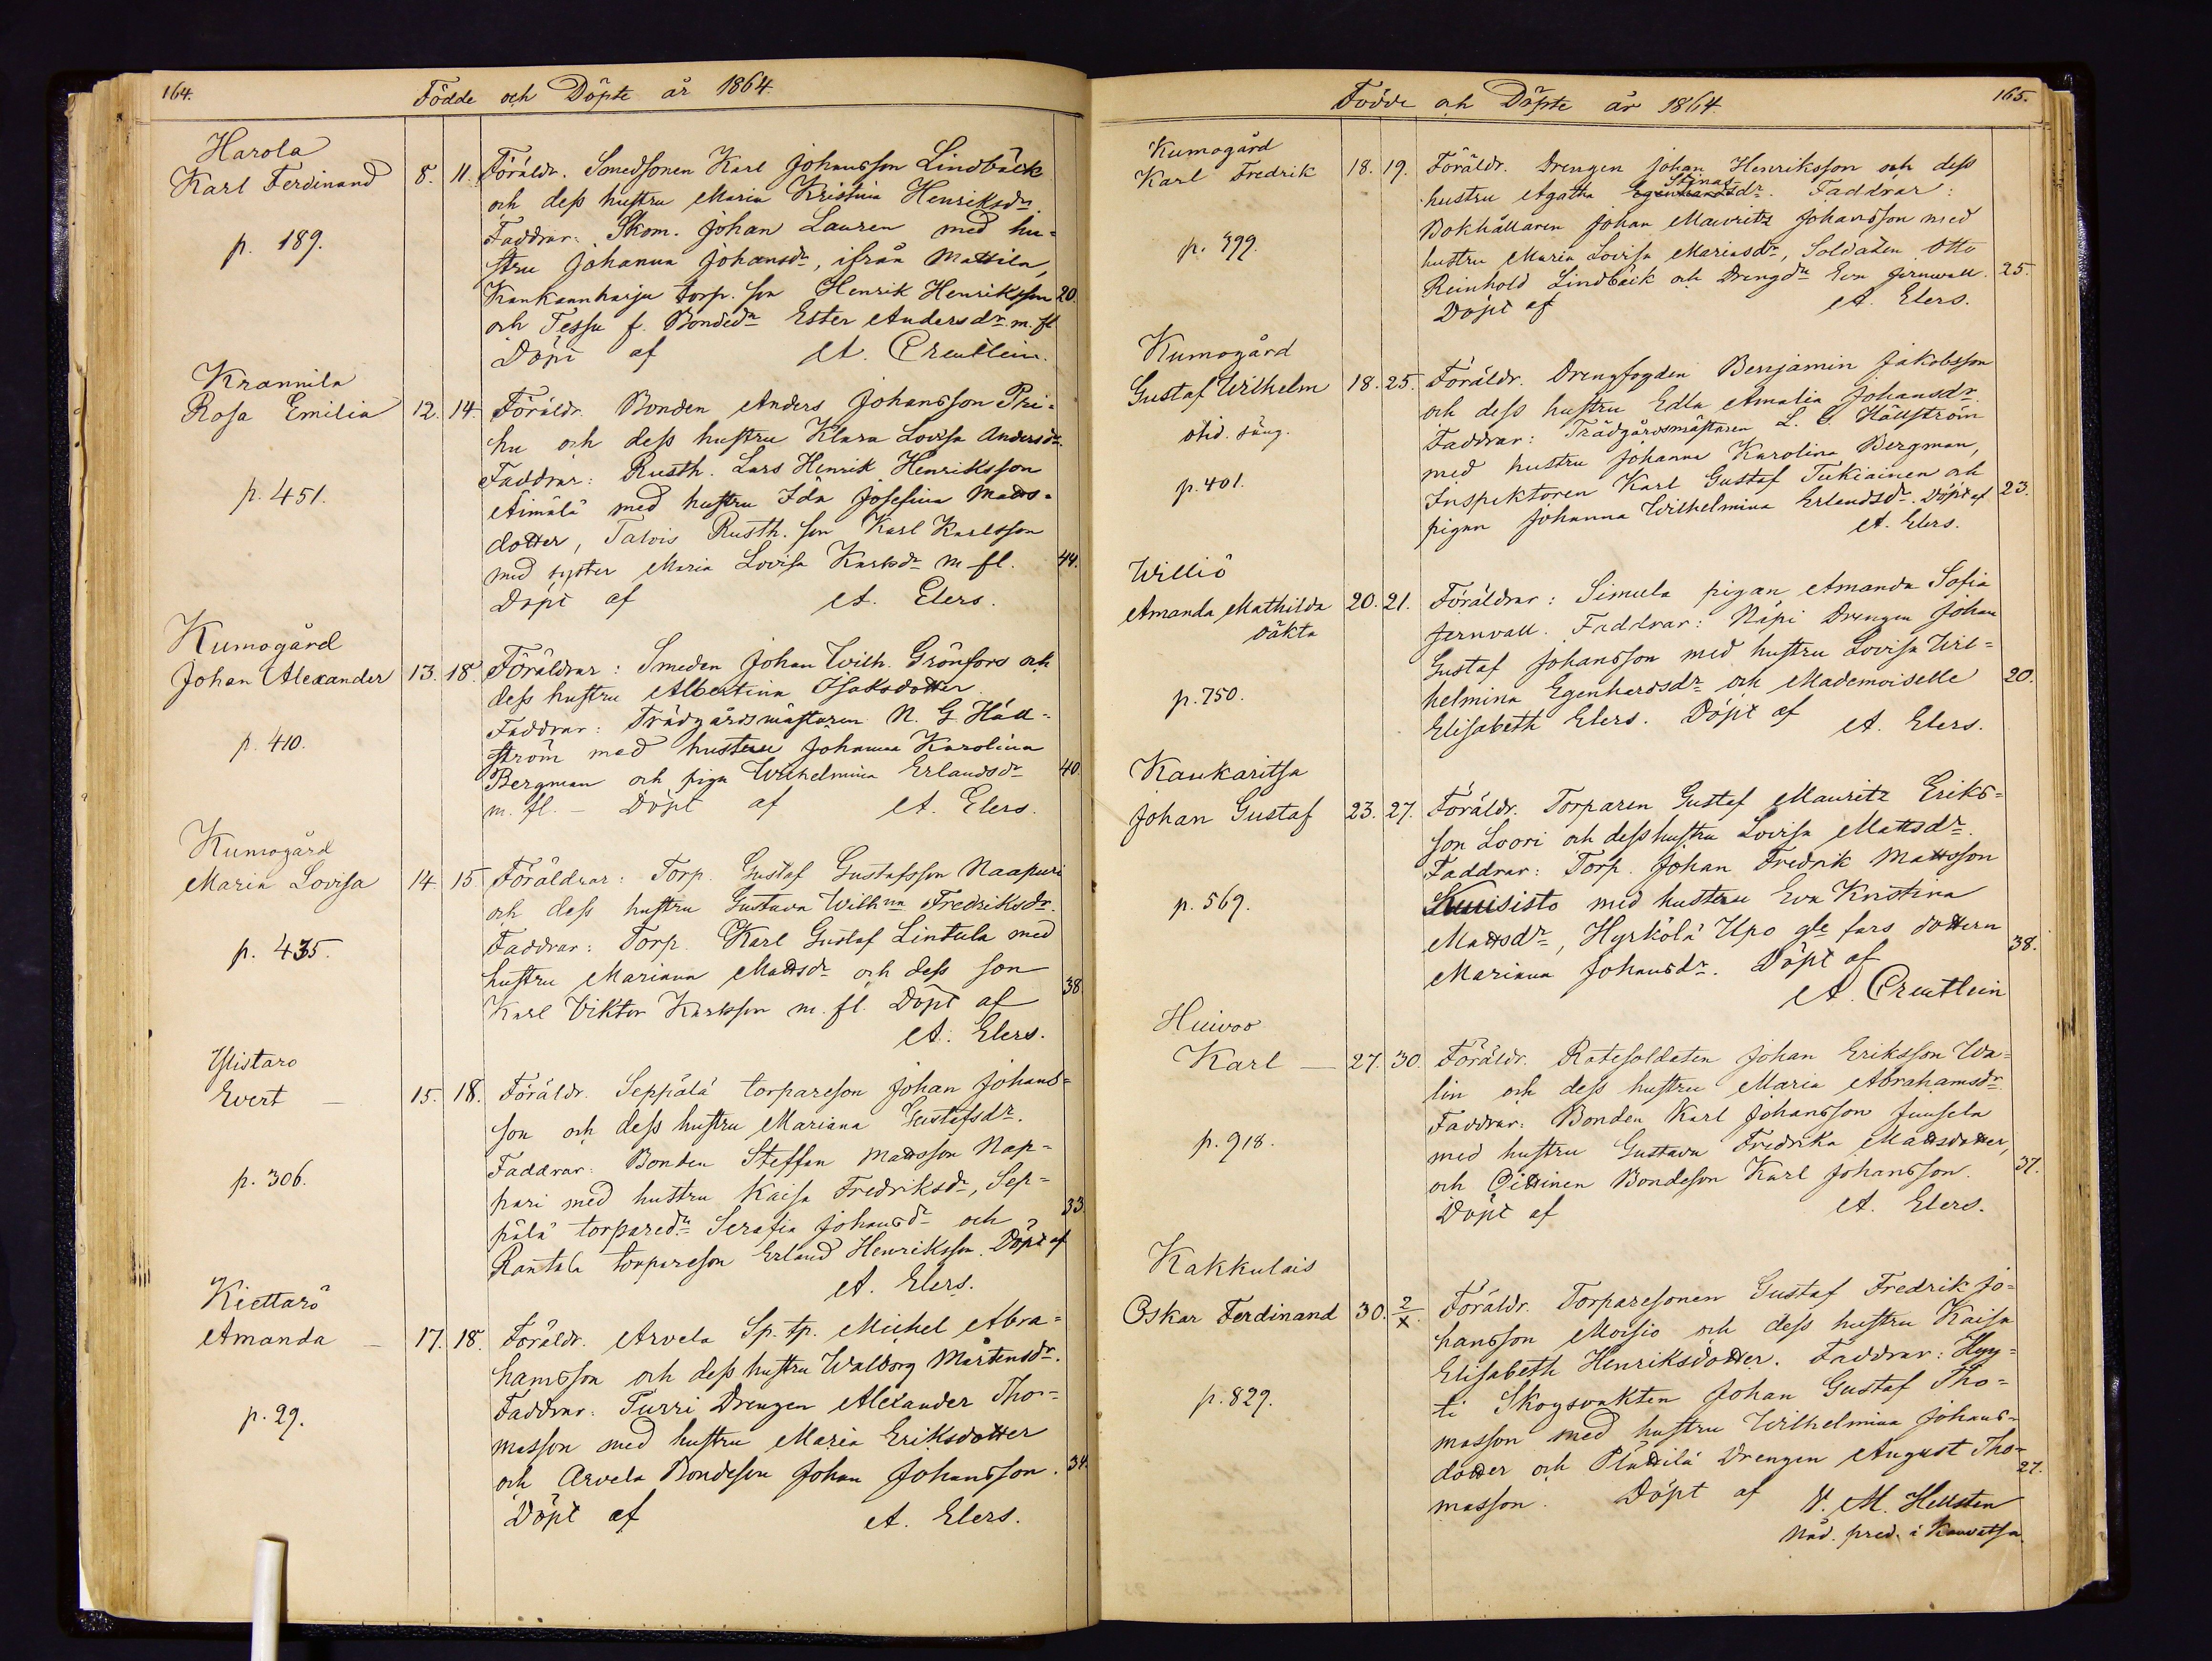 164.
Födde och Döpte år 1864.
Harola
Karl Ferdinand 8. 11. Föräldr. Smedsonen Karl Johansson Lindbäck
och dess hustru Maria Kristina Henriksdr.
p. 189. Faddrar: Skom. Johan Lauren med hu=
stru Johanna Johansdr, ifrån Mattila,
Kankaanharju torp. son Henrik Henriksson 20.
och Tessu f. Bondedr Ester Andersdr m. fl
Döpt af A. Creutlein.
Krannila
Rosa Emilia 12. 14. Föräldr. Bonden Anders Johansson Pri=
hu och dess hustru Klara Lovisa Andersdr.
p. 451. Faddrar: Rusth. Lars Henrik Henriksson
Äimälä med hustru Ida Josefina Matts=
dotter, Talvis Rusth. son Karl Karlsson
med syster Maria Lovisa Karlsdr m fl. 44.
Döpt af A. Elers.
Kumogård
Johan Alexander 13. 18. Föräldrar: Smeden Johan Wilh. Grönfors och
dess hustru Albertina Isaksdotter.
p. 410. Faddrar: Trädgårdsmästaren N. G. Häll=
ström med hustru Johanna Karolina
Bergman och piga Wilhelmina Erlandsdr 40.
m. fl. – Döpt af A. Elers.
Kumogård
Maria Lovisa 14. 15. Föräldrar: Torp. Gustaf Gustafsson Naapuri
och dess hustru Gustava Wilhna Fredriksdr.
p. 435. Faddrar: Torp. Karl Gustaf Lintula med
hustru Mariana Mattsdr och dess son
Karl Viktor Karlsson m. fl. Döpt af 38
A. Elers.
Ylistaro
Evert – 15. 18. Föräldr. Seppälä torpareson Johan Johans=
son och dess hustru Mariana Gustafsdr.
p. 306. Faddrar: Bonden Steffan Mattsson Nap=
pari med hustru Kaisa Fredriksdr, Sep=
pälä torparedr Serafia Johansdr och 33
Rantala torpareson Erland Henriksson. Döpt af
A. Elers.
Kiettarö
Amanda – 17. 18. Föräldr. Arvela Sp. tp. Michel Abra=
hamsson och dess hustru Walborg Mårtensdr.
p. 29. Faddrar: Turri Drengen Alexander Tho=
masson med hustru Maria Eriksdotter
och Arvela Bondeson Johan Johansson. 34.
Döpt af A. Elers.
Födde och Döpte år 1864.
165.
Kumogård
Karl Fredrik 18. 19. Föräldr. Drengen Johan Henriksson och dess
hustru Agatha Egenhardsdr Stinas. Faddrar:
p. 399. Bokhållaren Johan Mauritz Johansson med
hustru Maria Lovisa Mariasdr, Soldaten Otto
Reinhold Lindbäck och Drengdr Eva Jernvall. 25.
Döpt af A. Elers.
Kumogård
Gustaf Wilhelm 18. 25. Föräldr. Drengfogden Benjamin Jakobsson
och dess hustru Edla Amalia Johansdr.
p. 401. Faddrar: Trädgårdsmästaren L. G. Hällström
med hustru Johanna Karolina Bergman,
Inspektoren Karl Gustaf Tukiainen och
pigan Johanna Wilhelmina Erlandsdr. Döpt af 23.
A. Elers.
Williö
Amanda Mathilda 20. 21. Föräldrar: Simula pigan Amanda Sofia
oäkta
Jernvall. Faddrar: Näpi Drengen Johan
p. 750. Gustaf Johansson med hustru Lovisa Wil=
helmina Egenhardsdr och Mademoiselle 20.
Elisabeth Elers. Döpt af A. Elers.
Kaukaritsa
Johan Gustaf 23. 27. Föräldr. Torparen Gustaf Mauritz Eriks=
son Loori och dess hustru Lovisa Mattsdr.
p. 569. Faddrar: Torp. Johan Fredrik Mattsson
Kuusisto med hustru Eva Kristina
Mattsdr, Hyrkölä Upo gle fars dottern
Mariana Johansdr. Döpt af 38.
A. Creutlein
Huivoo
Karl – 27. 30. Föräldr. Rotesoldaten Johan Eriksson Wa=
lin och dess hustru Maria Abrahamsdr
p. 918. Faddrar: Bonden Karl Johansson Juusela
med hustru Gustava Fredrika Mattsdotter,
och Oittinen Bondeson Karl Johansson. 37.
Döpt af A. Elers.
Kakkulais
Oskar Ferdinand 30. 2/X. Föräldr. Torparesonen Gustaf Fredrik Jo=
hansson Moisio och dess hustru Kaisa
Elisabeth Henriksdotter. Faddrar: Hyy=
p. 829. ti Skogsvakten Johan Gustaf Tho=
masson med hustru Wilhelmina Johans=
dotter och Plättilä Drengen August Tho= 27.
masson. Döpt af V. M. Hellsten
Nåd. pred. i Kauvatsa.